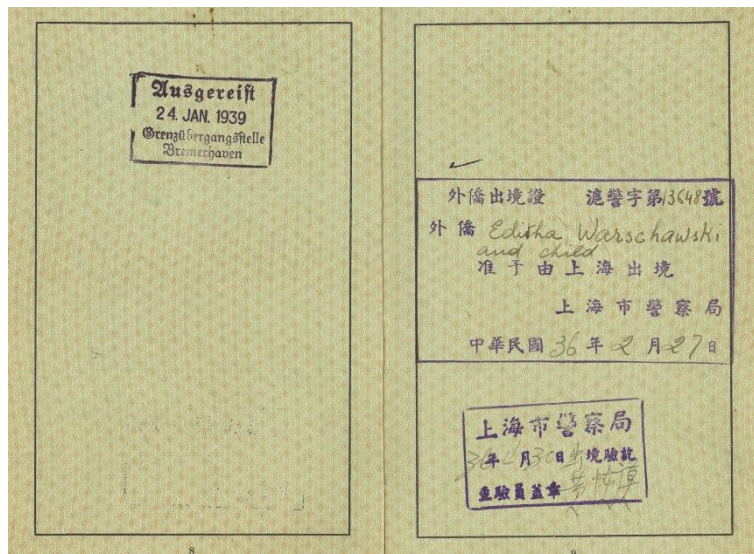 Ausgereist
24. JAN. 1939
Grenzübergangsstelle
Bremerhaven
8
外僑出境證 滬警字第13648號
外僑 Editha Warschawski
and child
准予由上海出境
上海市警察局
中華民國 36 年 2 月 27 日
上海市警察局
36 年 月 30 日 境驗訖
查驗員蓋章
9